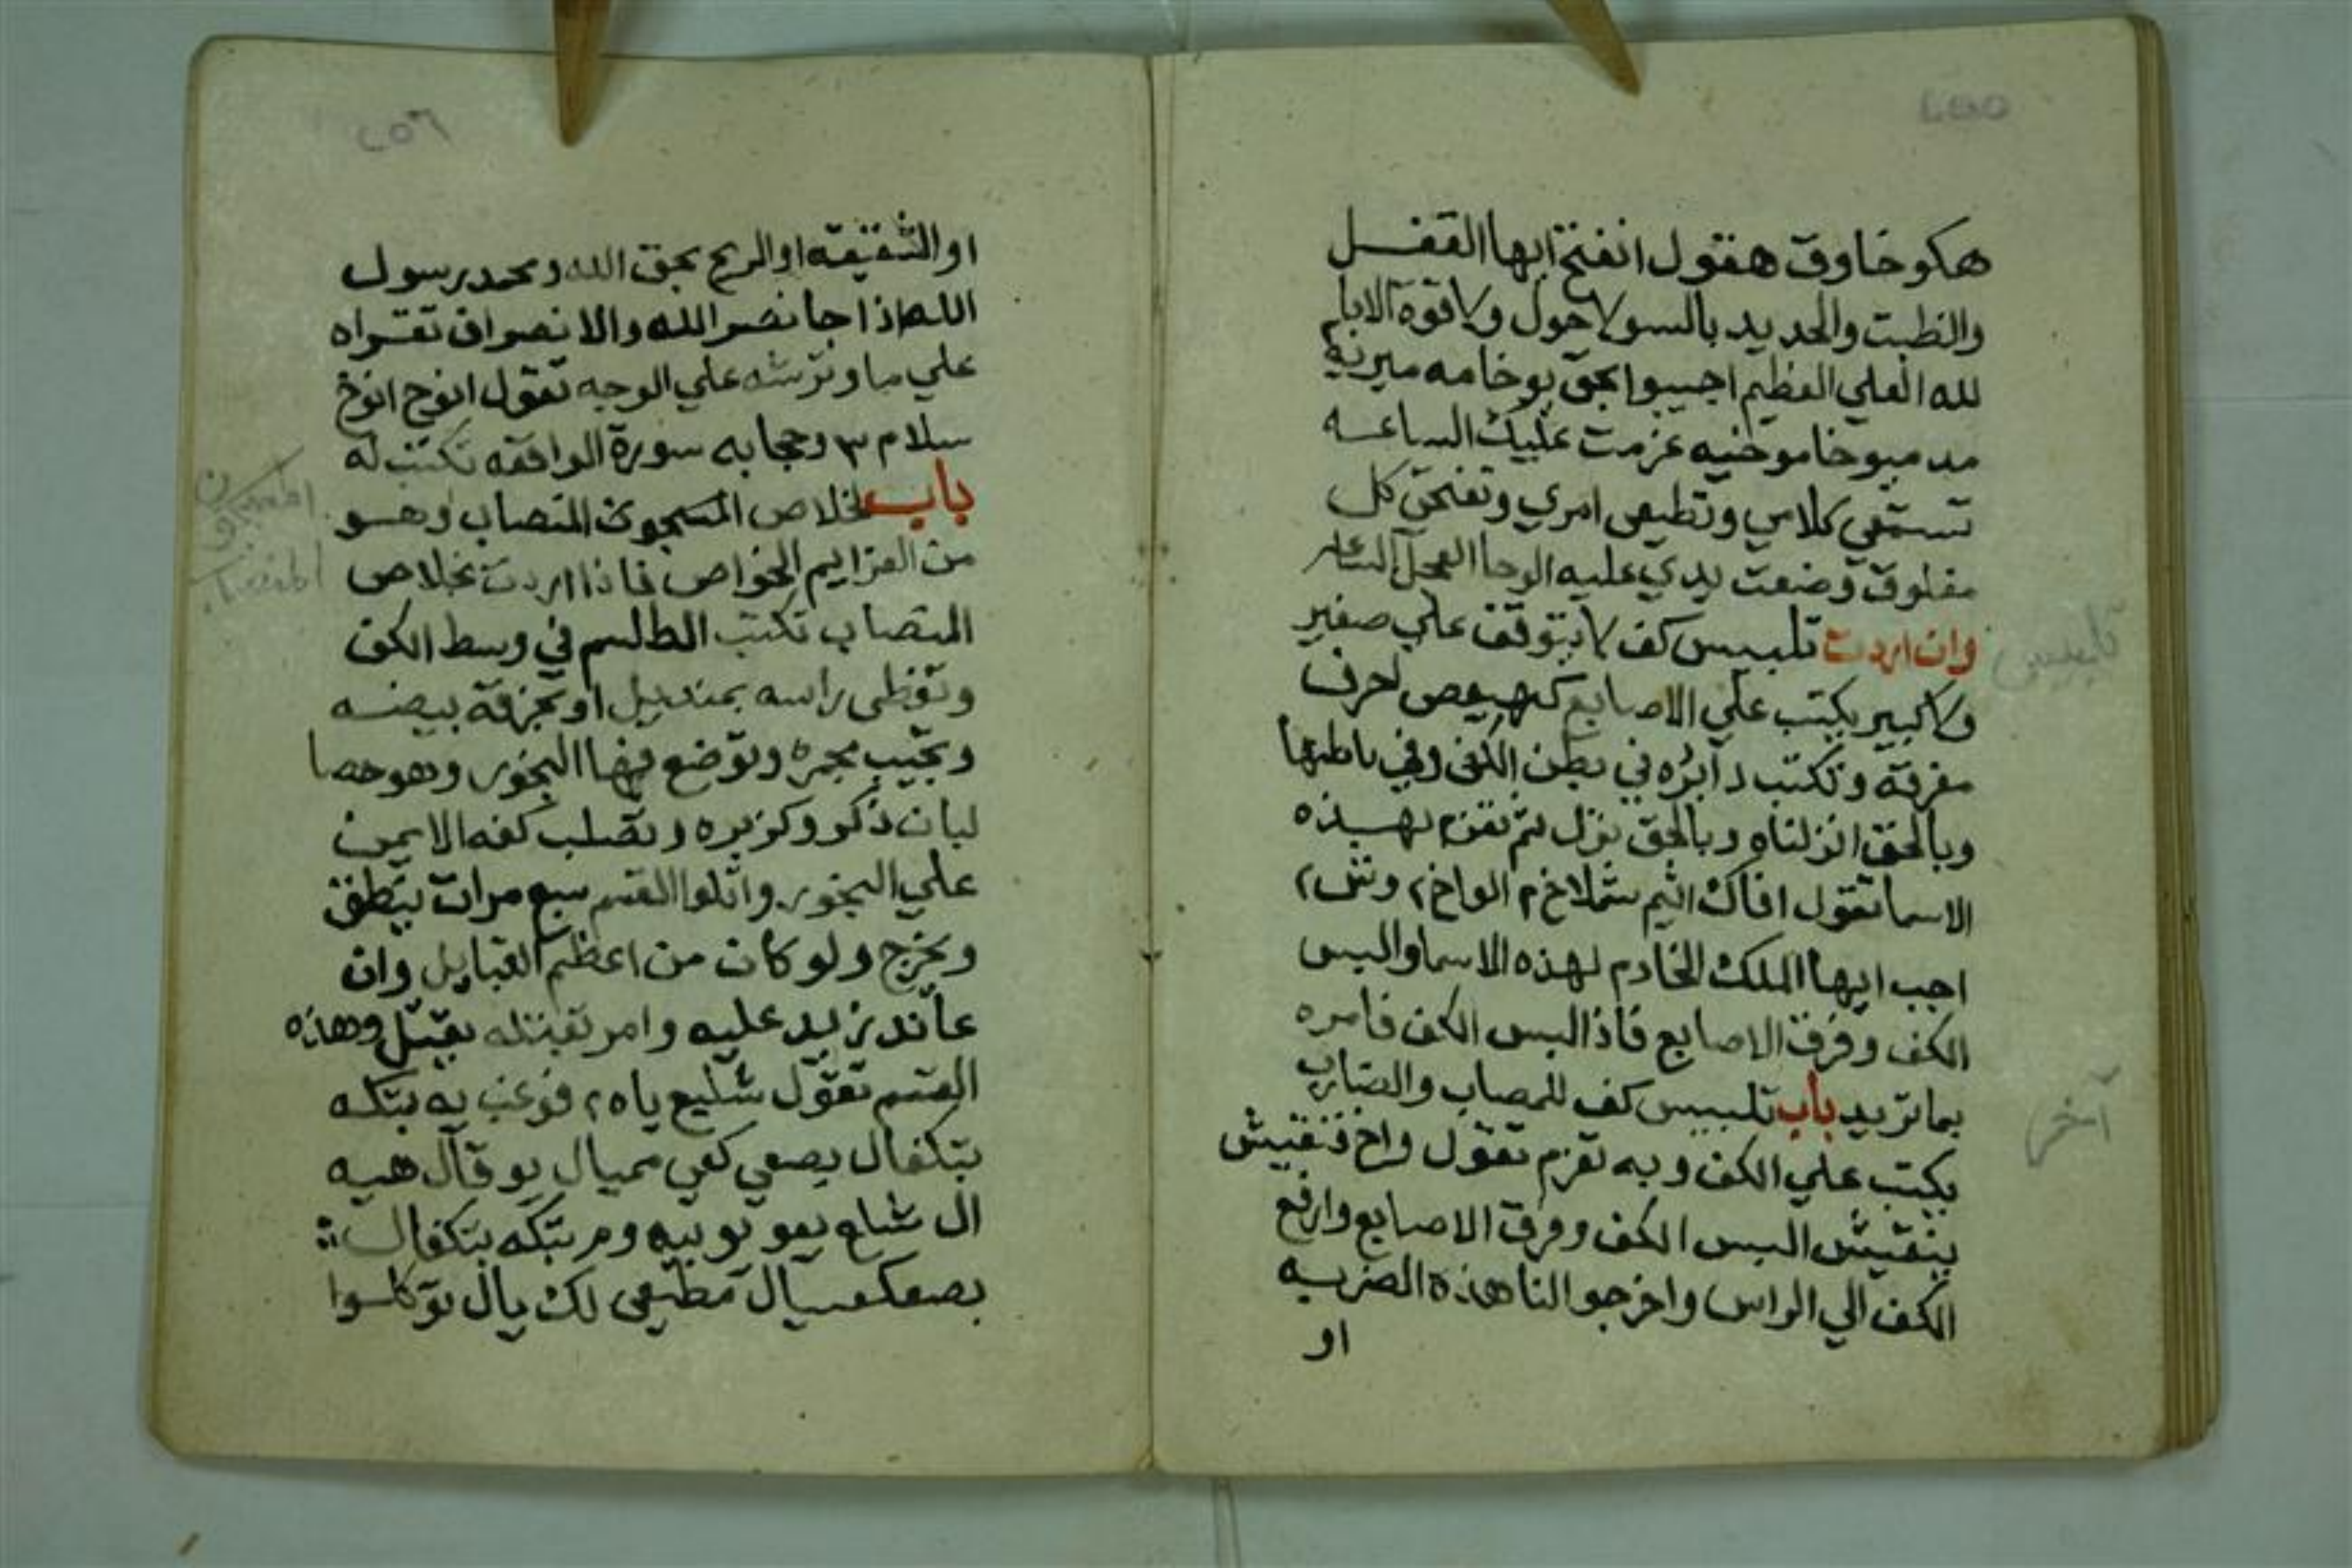 ٢٥٥
هكو خاوق هفول انفتح ايها القفل
والظبت والحديد بالسو لا حول ولا قوة الا با
لله العلي العظيم اجيبوا بحق بوخامه ميرنيه
مد ميوخاموخنيه عزمت عليك الساعه
تستمعي كلامي وتطيعي امري وتفتحي كل
مغلوق وضعت يدي عليه الوحا العجل الساعه
وان اردت تلبيس كف لا يتوقف علي صغير
ولا كبير يكتب علي الاصابع كهيعص احرف
مفرقه وتكتب دآيره في بطن الكف وفي باطنها
وبالحق انزلناه وبالحق نزل ثم تعزم بهذه
الاسما تقول افاك اثيم شملاخ ٢ الواخ ٢ وتش ٢
اجب ايها الملك الخادم لهذه الاسما والبس
الكف وفرق الاصابع فاذا لبس الكف فامره
بما تريد باب تلبيس كف للمصاب والضارب
يكتب علي الكف وبه تعزم تقول واخ فنقيش
بنقيش البس الكف وفرق الاصابع وارفع
الكف الي الراس واخرجوا لنا هذه الضربه
او
تلبيس
آخر
٢٥٦
او الشقيقه او الريح بحق الله ومحمد رسول
الله اذا جا نصر الله والانصراف تقراه
علي ما وترشه علي الوجه تقول انوخ انوخ
سلام ٣ وحجابه سورة الواقعه تكتب له
باب لخلاص المسجون المتصاب وهو
من العزايم الخواص فاذا اردت بخلاص
المتصاب تكتب الطلسم في وسط الكف
وتغطي راسه بمنديل او بخرقه بيضه
وتجيب مجمره وتوضع فيها البخور وهو حصا
لبان ذكر وكزبره وتصلب كفه الايمن
علي البخور واتلوا القسم سبع مرات ينطق
ويخرج ولو كان من اعظم القبايل وان
عاند نزيد عليه وامر بقتله يقتل وهذه
القسم تقول شليع ياه ٢ فوغب يه بتكه
بتكفال يصعي كعي ممیال يو قال هيه
ال شلع يعو يوبيه ومر بتكه بتكفال
بصعكعيال مطيعي لك يال توكلوا
المسجون
المتصاب